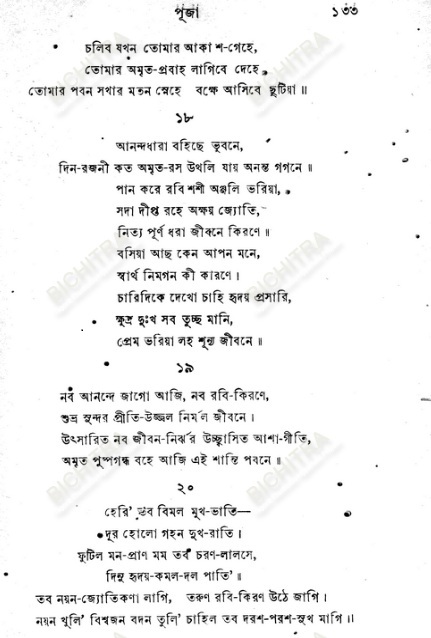 পূজা ১৩৩
চলিব যখন তোমার আকাশ-গেহে,
তোমার অমৃত-প্রবাহ লাগিবে দেহে,
তোমার পবন সখার মতন স্নেহে বক্ষে আসিবে ছুটিয়া॥
১৮
আনন্দধারা বহিছে ভুবনে,
দিন-রজনী কত অমৃত-রস উথলি যায় অনন্ত গগনে॥
পান করে রবি শশী অঞ্জলি ভরিয়া,
সদা দীপ্ত রহে অক্ষয় জ্যোতি,
নিত্য পূর্ণ ধরা জীবনে কিরণে॥
বসিয়া আছ কেন আপন মনে,
স্বার্থ নিমগন কী কারণে।
চারিদিকে দেখো চাহি হৃদয় প্রসারি,
ক্ষুদ্র দুঃখ সব তুচ্ছ মানি,
প্রেম ভরিয়া লহ শূন্য জীবনে॥
১৯
নব আনন্দে জাগো আজি, নব রবি-কিরণে,
শুভ্র সুন্দর প্রীতি-উজ্জ্বল নির্মল জীবনে।
উৎসারিত নব জীবন-নির্ঝর উচ্ছ্বাসিত আশা-গীতি,
অমৃত পুষ্পগন্ধ বহে আজি এই শান্তি পবনে॥
২০
হেরি' তব বিমল মুখ-ভাতি—
দূর হোলো গহন দুখ-রাতি।
ফুটিল মন-প্রাণ মম তব চরণ-লালসে,
দিনু হৃদয়-কমল-দল পাতি'॥
তব নয়ন-জ্যোতিকণা লাগি, তরুণ রবি-কিরণ উঠে জাগি।
নয়ন খুলি' বিশ্বজন বদন তুলি' চাহিল তব দরশ-পরশ-সুখ মাগি॥
BICHITRA
BICHITRA
BICHITRA
BICHITRA
BICHITRA
BICHITRA